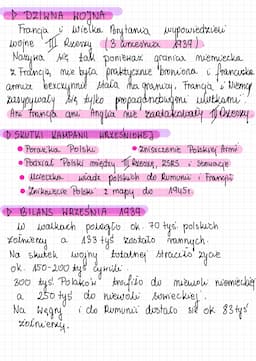 ▷ DZIWNA WOJNA
Francja i Wielka Brytania wypowiedzieli
wojnę III Rzeszy (3 września 1939)
Nazywa się tak ponieważ granica niemiecka
z Francją, nie była praktycznie broniona i francuska
armia bezczynnie stała na granicy. Francja i Niemcy
zasypywały się tylko propagandowymi ulotkami.
Ani Francja ani Anglia nie zaatakowały III Rzeszy.
▷ SKUTKI KAMPANII WRZEŚNIOWEJ
• Porażka Polski • Zniszczenie Polskiej Armii
• Podział Polski między III Rzeszę, ZSRS i Słowację
• Ucieczka władz polskich do Rumunii i Francji
• Zniknięcie Polski z mapy do 1945r.
▷ BILANS WRZEŚNIA 1939
W walkach poległo ok. 70 tyś. polskich
żołnierzy a 133 tyś zostało rannych.
Na skutek wojny totalnej straciło życie
ok. 150-200 tyś cywili.
300 tyś Polaków trafiło do niewoli niemieckiej
a 250 tyś do niewoli sowieckiej.
Na Węgry i do Rumunii dostało się ok 83 tyś
żołnierzy.